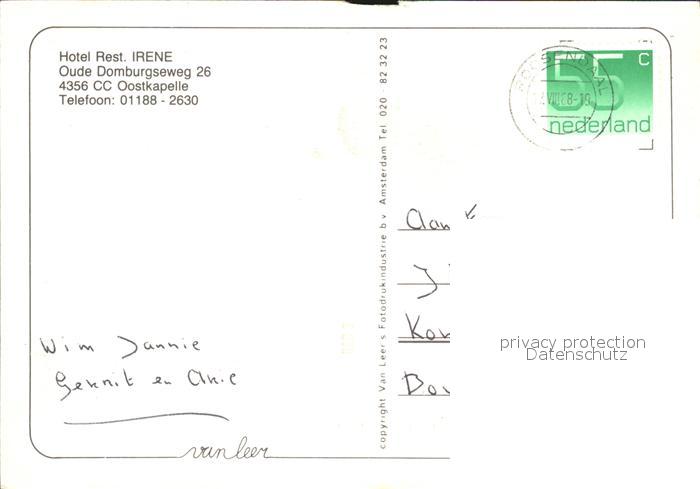 Hotel Rest. IRENE
Oude Domburgseweg 26
4356 CC Oostkapelle
Telefoon: 01188 - 2630
copyright Van Leer's Fotodrukindustrie b v Amsterdam Tel 020 - 82 32 23
ROOSENDAAL
VIII.88-19
55 C
nederland
Aan
J
Kon
Do
privacy protection
Datenschutz
Wim Jannie
Gerrit en Arie
van leer